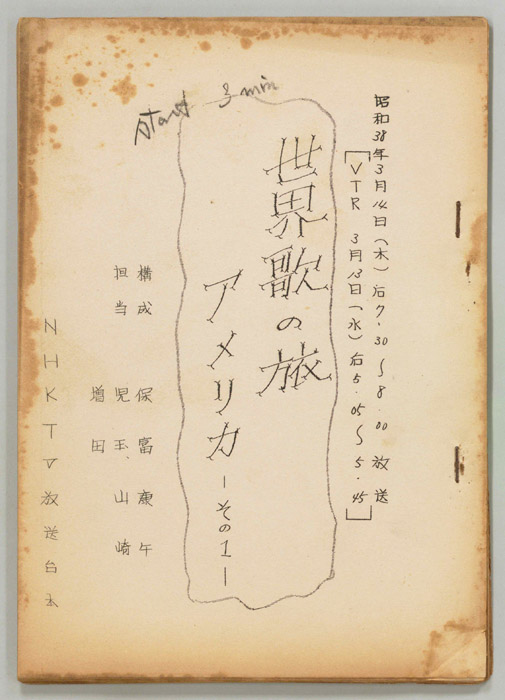 昭和38年3月14日(木)后7.30〜8.00放送
VTR 3月13日(水)后5.05〜5.45
Start 3 min
世界歌の旅
アメリカ
ーその1ー
構成 保富康午
担当 児玉、山崎
増田
NHKTV放送台本